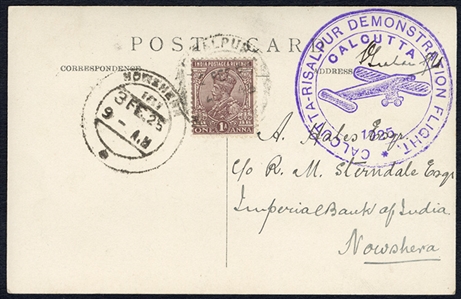 POST CARD
CORRESPONDENCE
ADDRESS
NOWSHERA
3 FE. 25
9 - A.M
INDIA POSTAGE & REVENUE
ONE 1A ANNA
CALCUTTA-RISALPUR DEMONSTRATION FLIGHT.
CALCUTTA
1925
A. Hales Esqr.
C/o R. M. Sterndale Esqr
Imperial Bank of India
Nowshera